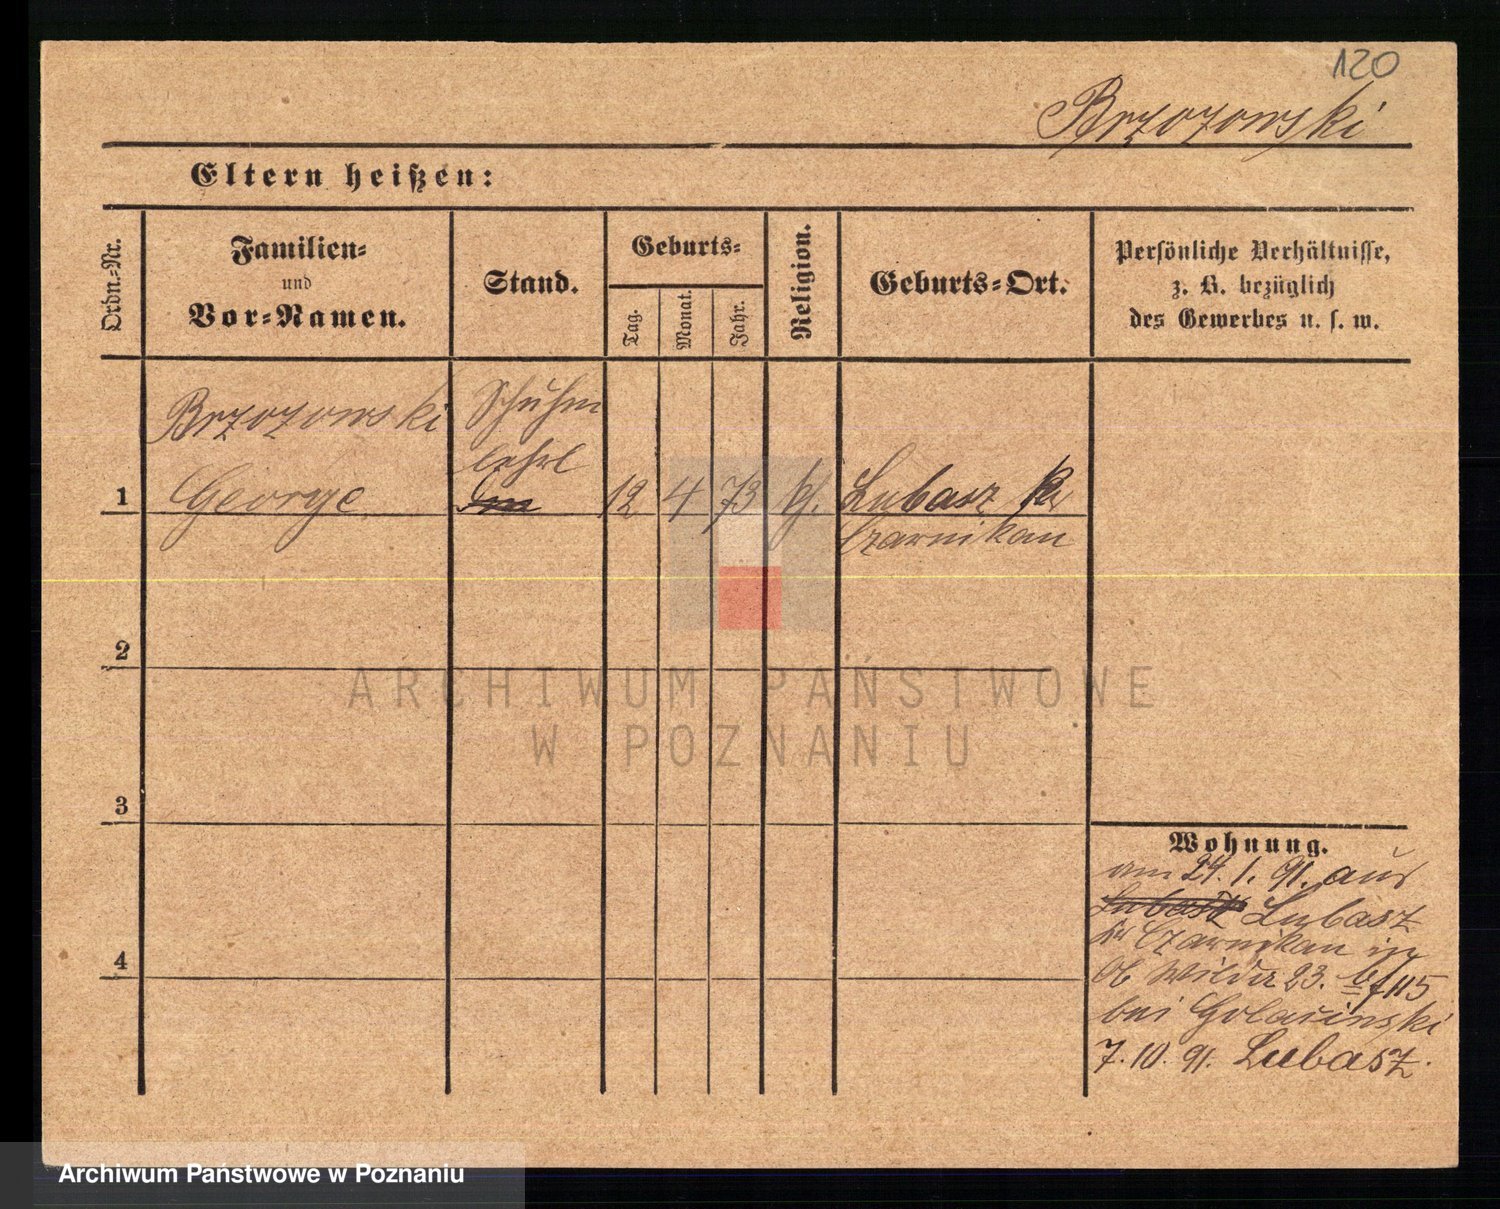 120
Brzozowski
Eltern heißen:
Ordn.-Nr.
Familien-
und
Vor-Namen.
Stand.
Geburts-
Tag.
Monat.
Jahr.
Religion.
Geburts-Ort.
Persönliche Verhältnisse,
z. B. bezüglich
des Gewerbes u. s. w.
Brzozowski
Schuhm
lehrl
1 George 12 4 73 k. Lubasz Kr
Czarnikau
2
ARCHIWUM PAŃSTWOWE
W POZNANIU
3
Wohnung.
am 24.1.91. aus
Lubasz Lubasz
Kr Czarnikau in
Ob Wilda 23.
bei
4
7.10.91. Lubasz.
Archiwum Państwowe w Poznaniu